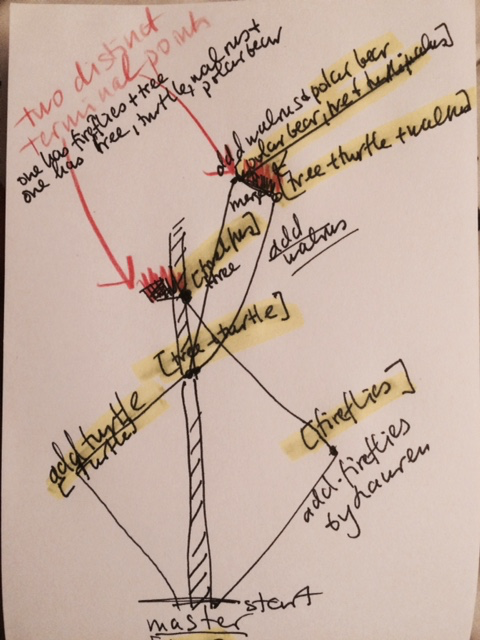 two distinct
terminal points
one has fireflies + tree
one has tree, turtle, walrus +
polar bear
add walrus + polar bear
polar bear, tree + turtle + walrus]
merge
[tree + turtle + walrus]
add
walrus
[fireflies]
+ tree
[tree + turtle]
add turtle
[turtle]
[fireflies]
add-fireflies
by Lauren
start
master